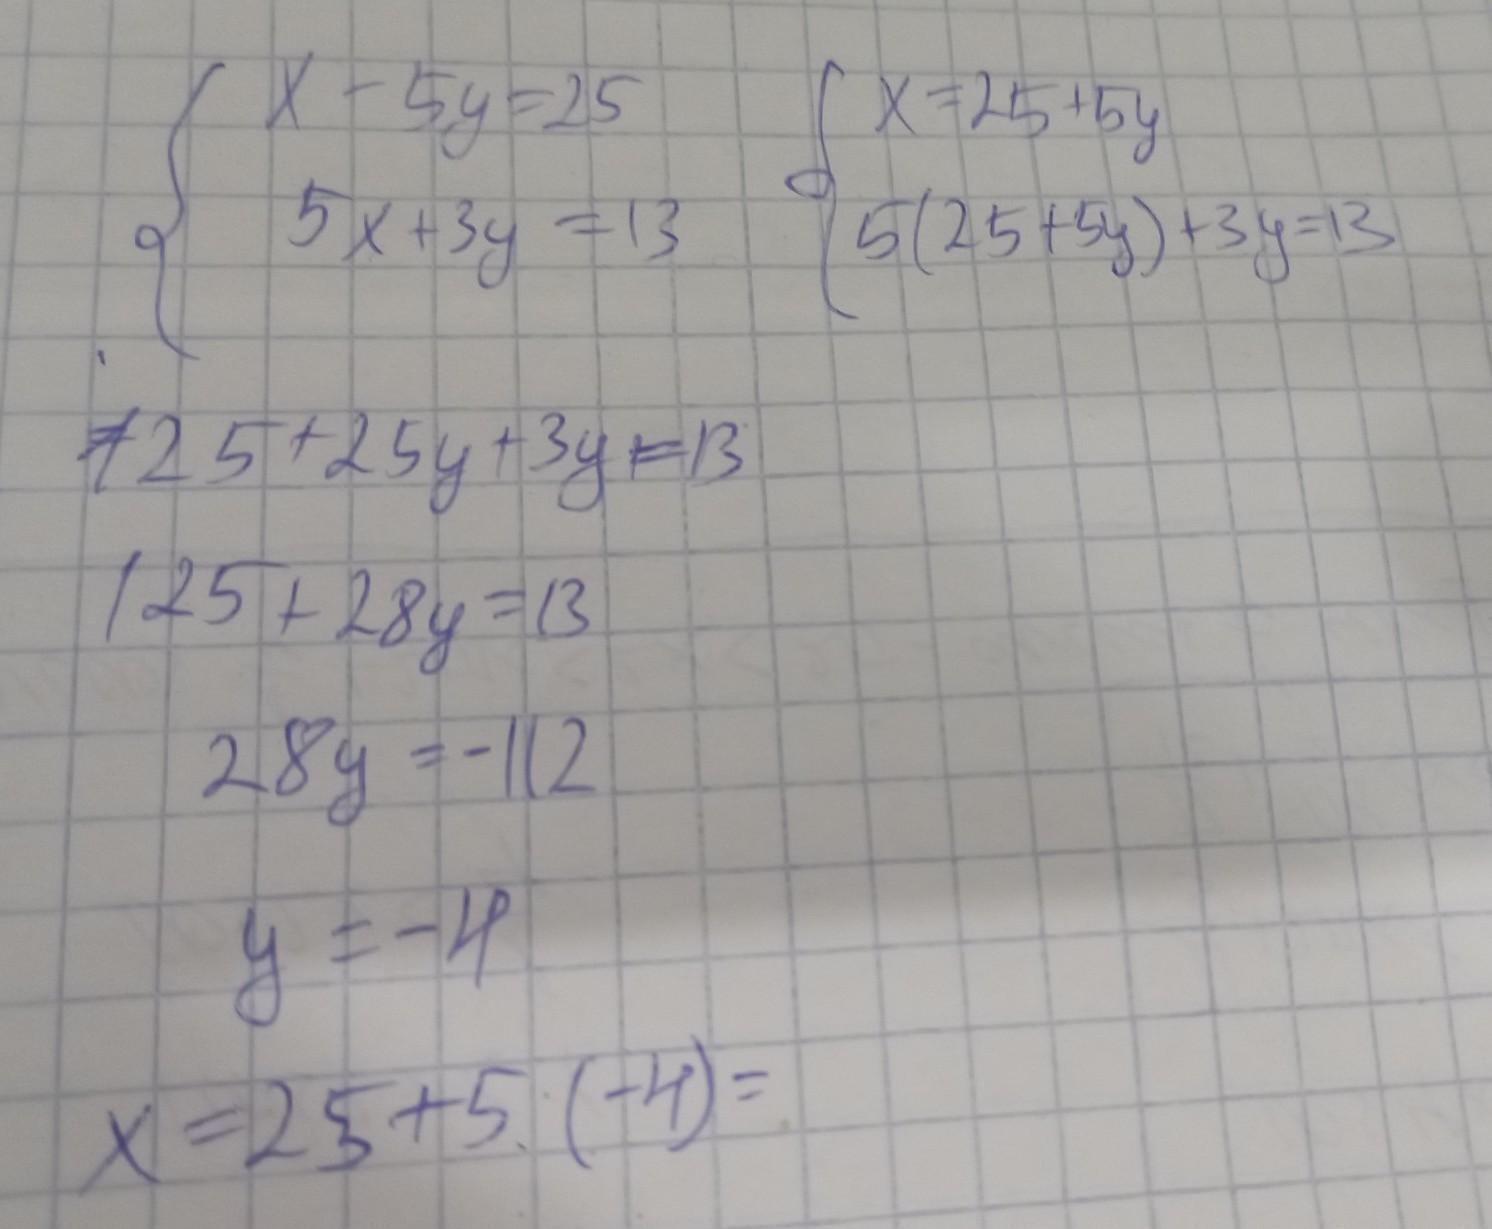 x - 5y = 25
5x + 3y = 13
x = 25 + 5y
5(25 + 5y) + 3y = 13
125 + 25y + 3y = 13
125 + 28y = 13
28y = -112
y = -4
x = 25 + 5 · (-4) =